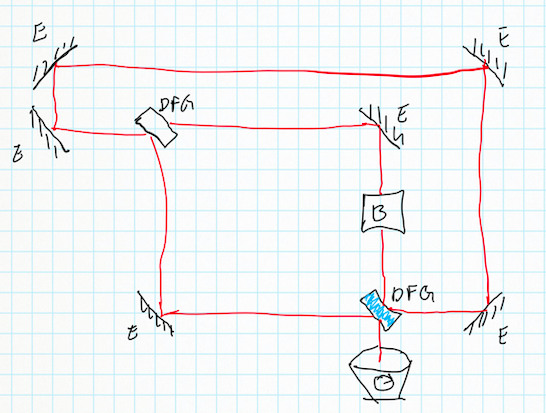 E
E
DFG
E
E
B
DFG
E
E